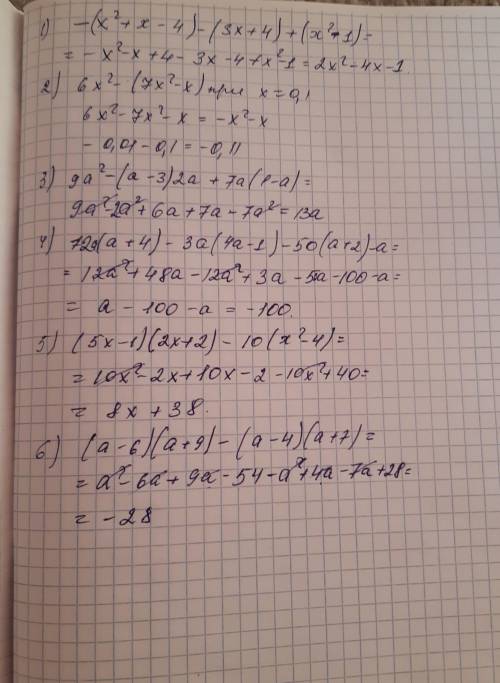 1) -(x²+x-4)-(3x+4)+(x²-1)=
= -x²-x+4-3x-4+x²-1=2x²-4x-1.
2) 6x²-(7x²-x) при x=0,1
6x²-7x²-x=-x²-x
-0,01-0,1=-0,11
3) 9a²-(a-3)2a+7a(1-a)=
9a²-2a²+6a+7a-7a²=13a
4) 12a(a+4)-3a(4a-1)-50(a+2)-a=
= 12a²+48a-12a²+3a-50a-100-a=
= a-100-a=-100.
5) (5x-1)(2x+2)-10(x²-4)=
= 10x²-2x+10x-2-10x²+40=
= 8x+38.
6) (a-6)(a+9)-(a-4)(a+7)=
= a²-6a+9a-54-a²+4a-7a+28=
= -28